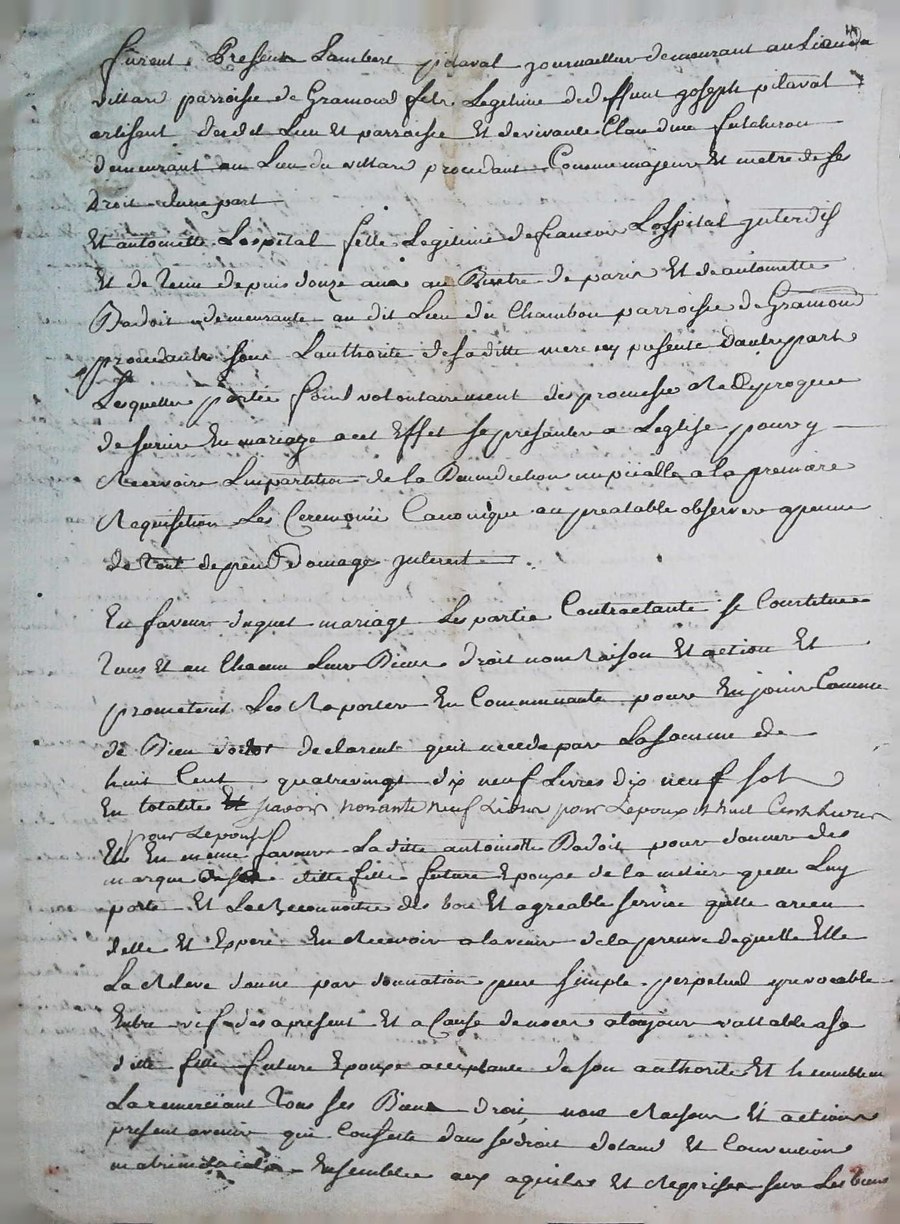 furent Present Lambert pitaval journaillier demeurant au Lieu du
villard parroisse de Gramond fils Legitime de deffunt joseph pitaval
artisant du dit Lieu Et parroisse Et de vivante Claudine futcheron
demeurant au Lieu du villard procedant Comme majeur Et metre de ses
Droit dune part
Et antoinette Lospital fille Legitime de francois Lospital jnterdis
Et detenu depuis douze ans au Bisetre de paris Et de antoinette
Badoit demeurante au dit Lieu du Chambon parroisse de Gramond
procedante sous Lauthorite de sa ditte mere cy presente dautre part
Lesquelles partie font volontairement des promesse Reciproques
de sunir En mariage a cet Effet se presanter a Leglise pour y
Recervoire Linpartition de la Benediction nupcialle a la premiere
Requisition Les Ceremonie Canonique au prealable observer a peinne
de tout depend Domage jnterest
En faveur duquel mariage Les partie Contractante se Constitue
tous Et un Chacun Leurs Biens droit nom Raison Et action Et
prometent Les Raporter En Communaute pour En jouir Comme
de Bien declarent quil n'exede pas La somme de
huit Cent quatrevingt dix neuf Livres dix neuf sol
En totalites savoir nonante neuf Livres pour Lepoux Et huit Cent Livres
pour Lepouse
Et En meme faveur La ditte antoinette Badoit pour donner des
marque a sa ditte fille future Epouse de la mitier quelle Luy
porte Et La Reconnoitre des bon Et agreable service quelle a recu
delle Et Espere En Recevoir a lavenir de la preuve desquelle Elle
La Releve donne par donnation pure simple perpetuel yrevocable
Entre vif des a present Et a Cause de noces a toujour vallable a sa
ditte fille future Epouse acceptante de son authorite Et humblem
La remerciant tous ses Biens droit nom Raison Et action
present avenir qui Consiste dans ses droit dotaux Et Convention
matrimoniale Ensemble aux aquits Et Reprises sur Les biens